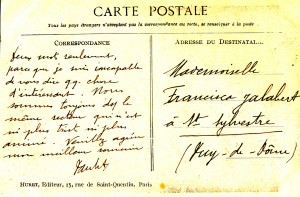 CARTE POSTALE
Tous les pays étrangers n'acceptent pas la correspondance au recto, se renseigner à la poste
CORRESPONDANCE
ADRESSE DU DESTINATAI...
Deux mot seulement,
parce que je suis incapable
de vous dire qq. chose
d'intéressant. Nous
sommes toujours ds le
même secteur qui n'est
ni plus triste ni plus
animé. Veuillez agréer
mon meilleur souvenir
Mademoiselle
Francisca Jalabert
à St Sylvestre
(Puy-de-Dôme)
HURET, Editeur, 15, rue de Saint-Quentin, Paris